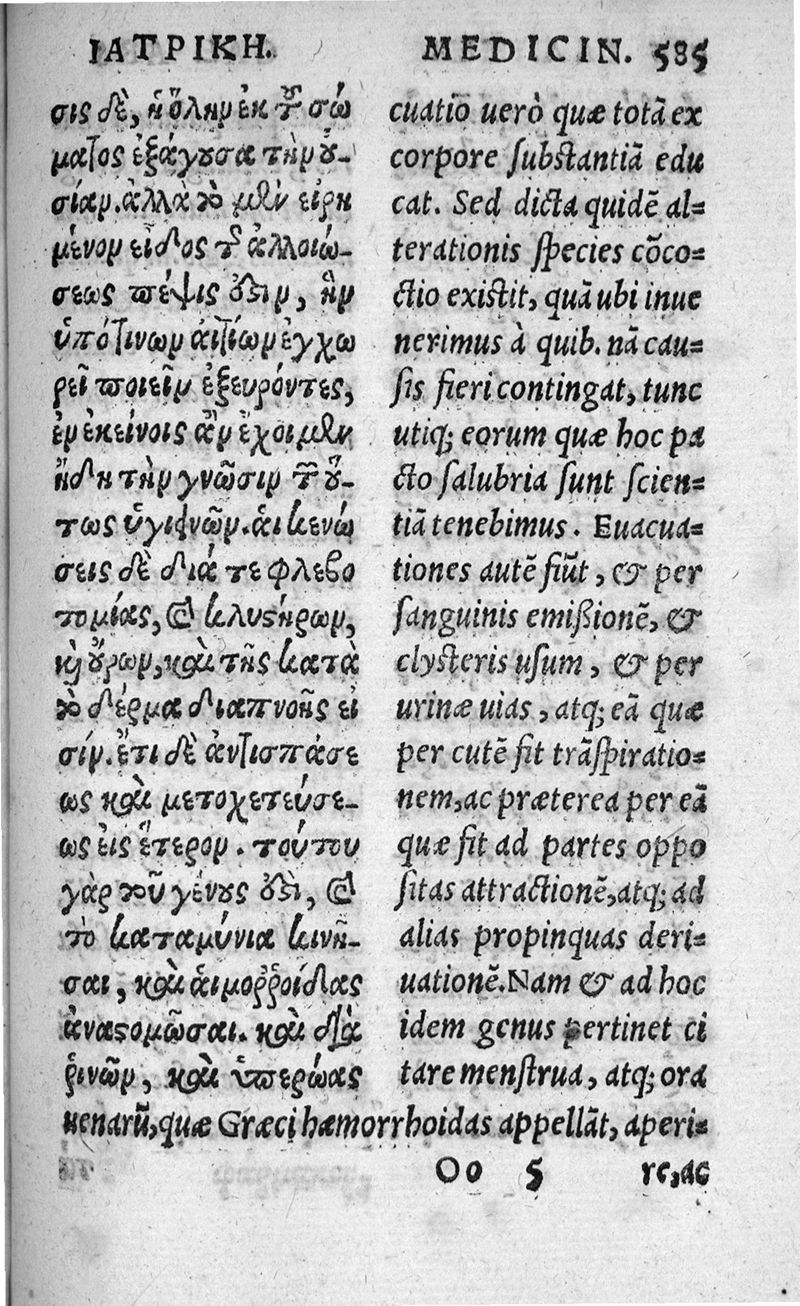 ΙΑΤΡΙΚΗ. MEDICIN. 585
σις δὲ, ἡ ὅλην ἐκ τοῦ σώ
ματος ἐξάγουσα τὴν οὐ-
σίαν. ἀλλὰ τὸ μὲν εἰρη
μένον εἶδος τῆς ἀλλοιώ-
σεως πέψις ἐστὶν, ἣν
ὑπό τινων αἰτίων ἐγχω
ρεῖ ποιεῖν ἐξευρόντες,
ἐν ἐκείνοις ἂν ἔχοιμεν
ἤδη τὴν γνῶσιν τῶν οὕ-
τως ὑγιεινῶν. αἱ κενώ
σεις δὲ διά τε φλεβο
τομίας, καὶ κλυστήρων,
καὶ οὔρων, καὶ τῆς κατὰ
τὸ δέρμα διαπνοῆς εἰ
σίν. ἔτι δὲ ἀντισπάσε
ως καὶ μετοχετεύσε-
ως εἰς ἕτερον. τούτου
γὰρ τοῦ γένους ἐστὶ, καὶ
τὸ καταμύνια κινῆ-
σαι, καὶ αἱμοῤῥοίδας
ἀναστομῶσαι. καὶ διὰ
ῥινῶν, καὶ ὑπερώας
cuatiõ uerò quæ totã ex
corpore substantiã edu
cat. Sed dicta quidẽ al=
terationis species cõco=
ctio existit, quã ubi inue
nerimus à quib. nã cau=
sis fieri contingat, tunc
utiq; eorum quæ hoc pa
cto salubria sunt scien=
tiã tenebimus. Euacua=
tiones autẽ fiũt, & per
sanguinis emißionẽ, &
clysteris usum, & per
urinæ uias, atq; eã quæ
per cutẽ fit trãspiratio=
nem, ac præterea per eã
quæ fit ad partes oppo
sitas attractionẽ, atq; ad
alias propinquas deri=
uationẽ. Nam & ad hoc
idem genus pertinet ci
tare menstrua, atq; ora
uenarũ, quæ Græci hæmorrhoidas appellãt, aperi=
Oo 5 re, ac